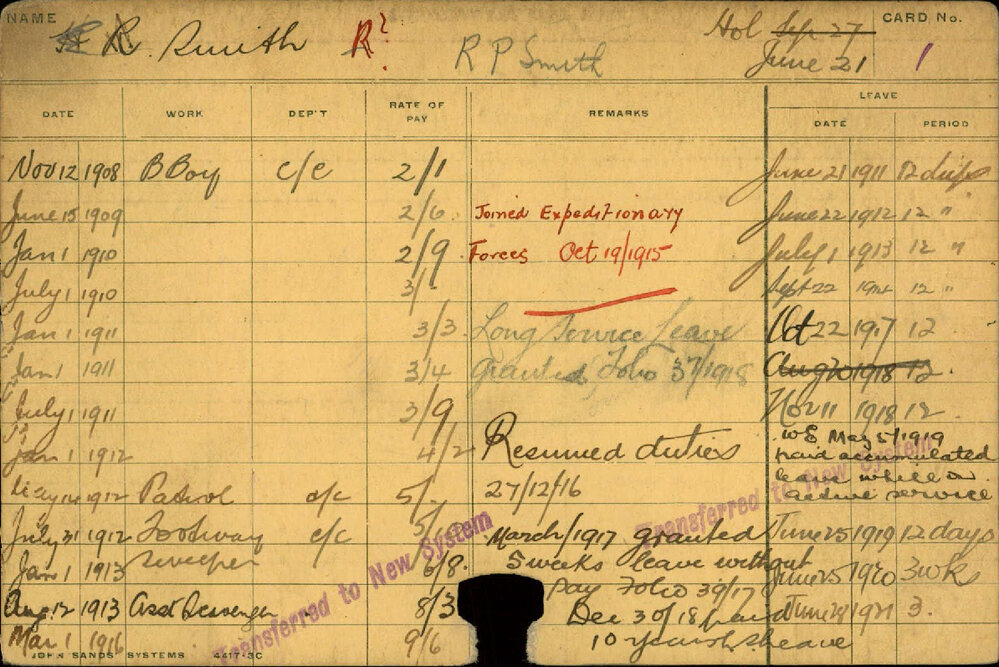 NAME R. Smith R? R P Smith Hol Sep 27 CARD No.
June 21 1
LEAVE
DATE WORK DEP'T RATE OF PAY REMARKS DATE PERIOD
Nov 12 1908 B Boy c/c 2/1 June 21 1911 12 days
June 15 1909 2/6 Joined Expeditionary June 22 1912 12 "
Jan 1 1910 2/9 Forces Oct 19/1915 July 1 1913 12 "
July 1 1910 3/- Sept 22 1914 12 "
Jan 1 1911 3/3 Long Service Leave Oct 22 1917 12
Jan 1 1911 3/4 Granted Folio 37/1918 Aug 20 1918 12
July 1 1911 3/9 Nov 11 1918 12
Jan 1 1912 4/2 Resumed duties W E May 5/1919
paid accumulated
leave while on
active service
1912 Patrol c/c 5/- 27/12/16
July 31 1912 Footway c/c March/1917 granted June 25 1919 12 days
Jan 1 1913 sweeper 6/8 5 weeks leave without June 25 1920 3 wks
pay Folio 39/17
Aug 12 1913 Asst 8/3 Dec 30/18 paid June 1921 3.
Mar 1 1916 9/6 10 leave
Transferred to New System
Transferred to New System
JOHN SANDS SYSTEMS 4417-3C